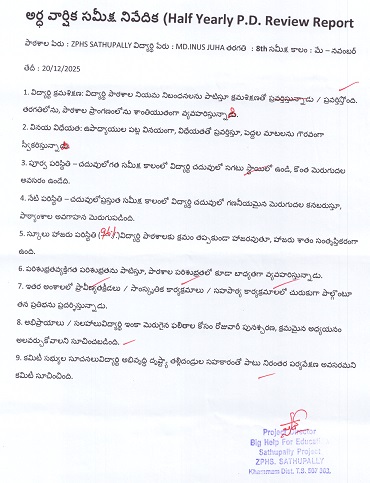 అర్ధ వార్షిక సమీక్ష నివేదిక (Half Yearly P.D. Review Report
పాఠశాల పేరు : ZPHS SATHUPALLY విద్యార్థి పేరు : MD.INUS JUHA తరగతి : 8th సమీక్ష కాలం : మే – నవంబర్
తేదీ : 20/12/2025
1. విద్యార్థి క్రమశిక్షణ: విద్యార్థి పాఠశాల నియమ నిబంధనలను పాటిస్తూ క్రమశిక్షణతో ప్రవర్తిస్తున్నాడు / ప్రవర్తిస్తోంది.
తరగతిలోను, పాఠశాల ప్రాంగణంలోను శాంతియుతంగా వ్యవహరిస్తున్నాడు.
2. వినయ విధేయత: ఉపాధ్యాయుల పట్ల వినయంగా, విధేయతతో ప్రవర్తిస్తూ, పెద్దల మాటలను గౌరవంగా
స్వీకరిస్తున్నాడు
3. పూర్వ పరిస్థితి – చదువులోగత సమీక్ష కాలంలో విద్యార్థి చదువులో సగటు స్థాయిలో ఉండి, కొంత మెరుగుదల
అవసరం ఉండేది.
4. నేటి పరిస్థితి – చదువులోప్రస్తుత సమీక్ష కాలంలో విద్యార్థి చదువులో గణనీయమైన మెరుగుదల కనబరుస్తూ,
పాఠ్యాంశాల అవగాహన మెరుగుపడింది.
5. స్కూలు హాజరు పరిస్థితి విద్యార్థి పాఠశాలకు క్రమం తప్పకుండా హాజరవుతూ, హాజరు శాతం సంతృప్తికరంగా
ఉంది.
6. పరిశుభ్రతవ్యక్తిగత పరిశుభ్రతను పాటిస్తూ, పాఠశాల పరిశుభ్రతలో కూడా బాధ్యతగా వ్యవహరిస్తున్నాడు.
7. ఇతర అంశాలలో ప్రావీణ్యతక్రీడలు / సాంస్కృతిక కార్యక్రమాలు / సహపాఠ్య కార్యక్రమాలలో చురుకుగా పాల్గొంటూ
తన ప్రతిభను ప్రదర్శిస్తున్నాడు.
8. అభిప్రాయాలు / సలహాలువిద్యార్థి ఇంకా మెరుగైన ఫలితాల కోసం రోజువారీ పునశ్చరణ, క్రమమైన అధ్యయనం
అలవర్చుకోవాలని సూచించబడింది.
9. కమిటీ సభ్యుల సూచనలువిద్యార్థి అభివృద్ధి దృష్ట్యా తల్లిదండ్రుల సహకారంతో పాటు నిరంతర పర్యవేక్షణ అవసరమని
కమిటీ సూచించింది.
Project Director
Big Help For Education
Sathupally Project
ZPHS. SATHUPALLY
Khammam Dist. T.S. 507 303.